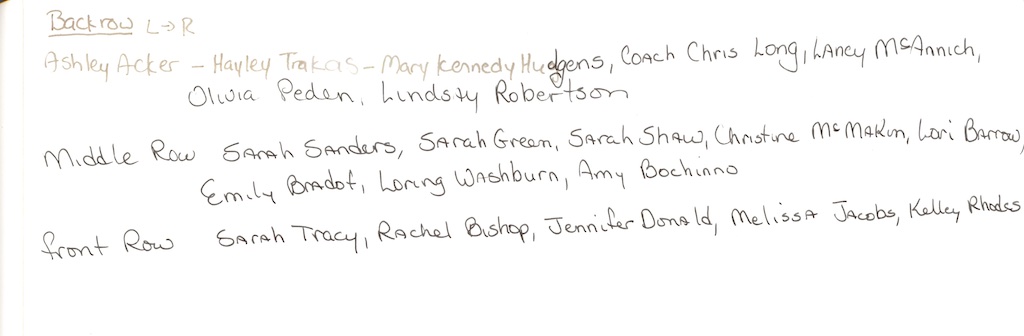 Back row L→R
Ashley Acker – Hayley Trakas – Mary Kennedy Hudgens, Coach Chris Long, Lancy McAnnich,
Olivia Peden, Lindsty Robertson
Middle Row Sarah Sanders, Sarah Green, Sarah Shaw, Christine McMakin, Lori Barrow,
Emily Bradof, Loring Washburn, Amy Bochinno
front Row Sarah Tracy, Rachel Bishop, Jennifer Donald, Melissa Jacobs, Kelley Rhodes